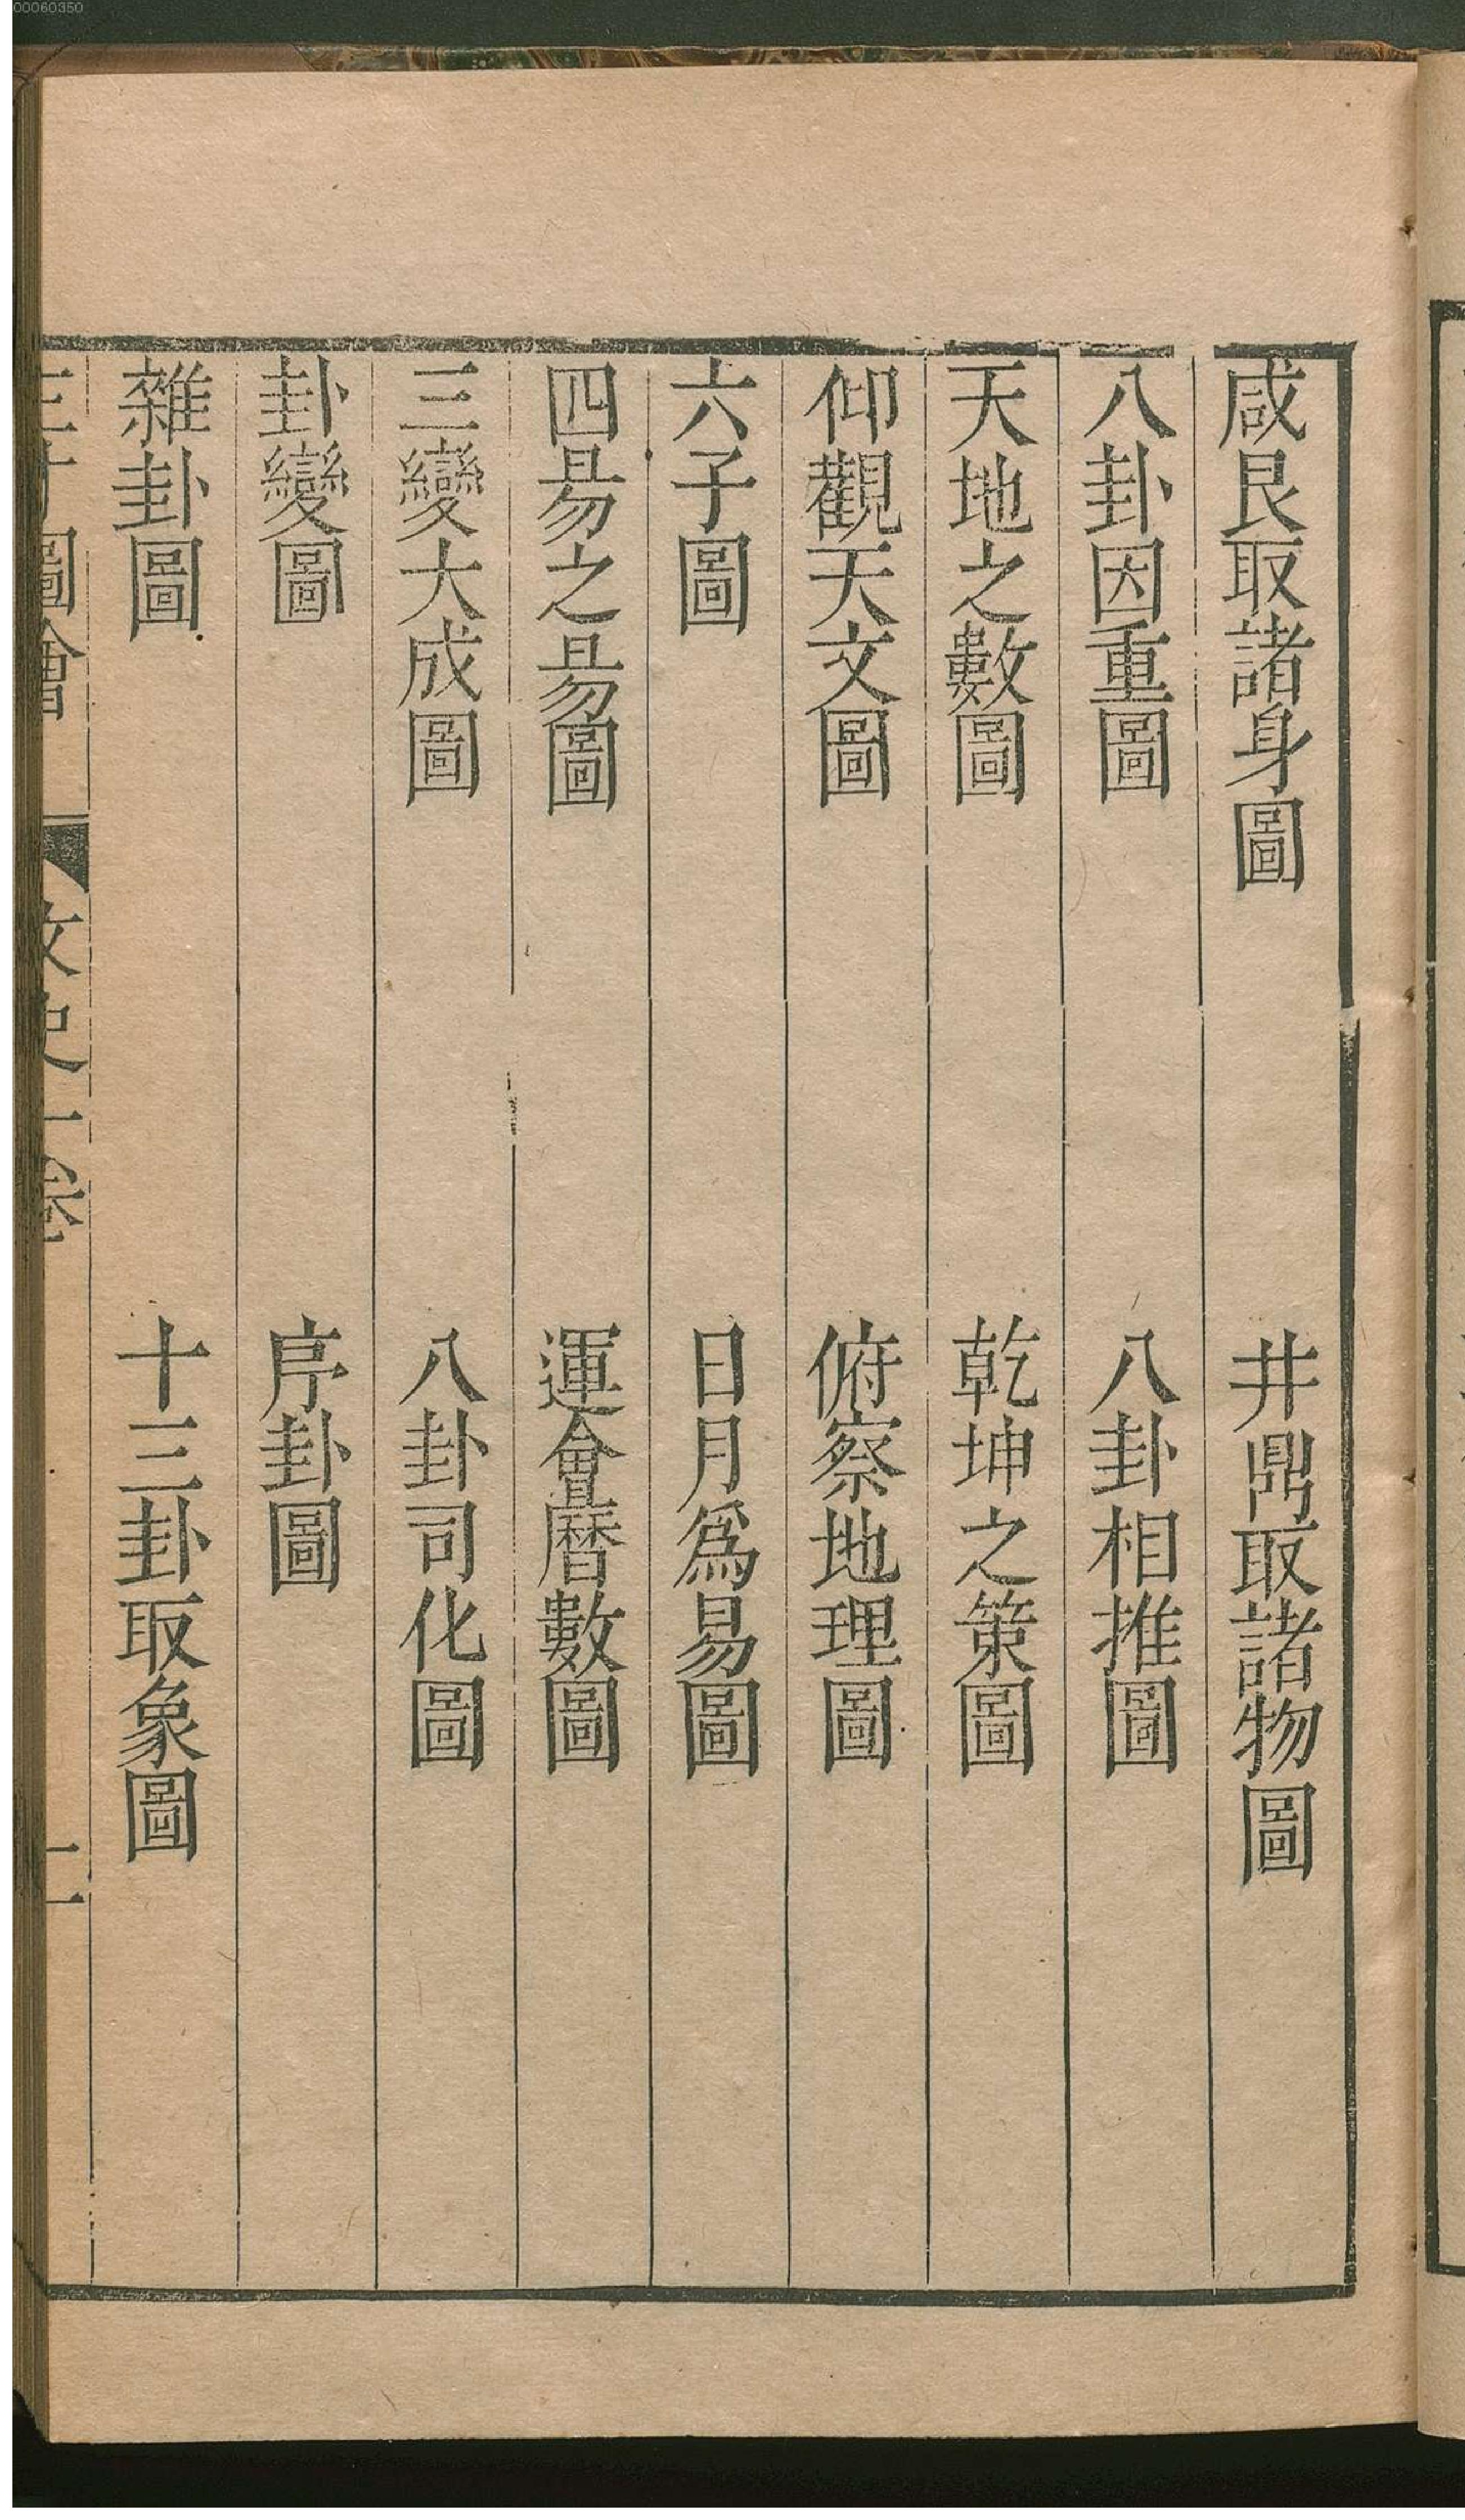 咸艮取諸身圖　井鼎取諸物圖
八卦因重圖　八卦相推圖
天地之數圖　乾坤之策圖
仰觀天文圖　俯察地理圖
六子圖　日月爲易圖
四昜之昜圖　運會曆數圖
三變大成圖　八卦司化圖
卦變圖　序卦圖
雜卦圖　十三卦取象圖
三才圖會　文史一卷　二
00060350